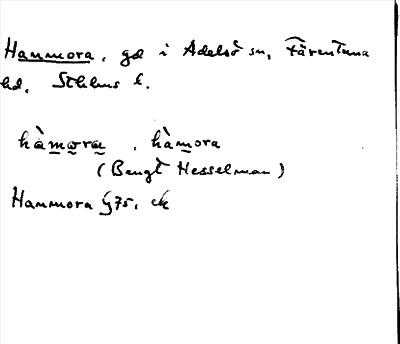 Hammora, gd i Adelsö sn, Färentuna
hd, Sthlms l.
hàmora, hàmora
(Bengt Hesselman)
Hammora G75, ek